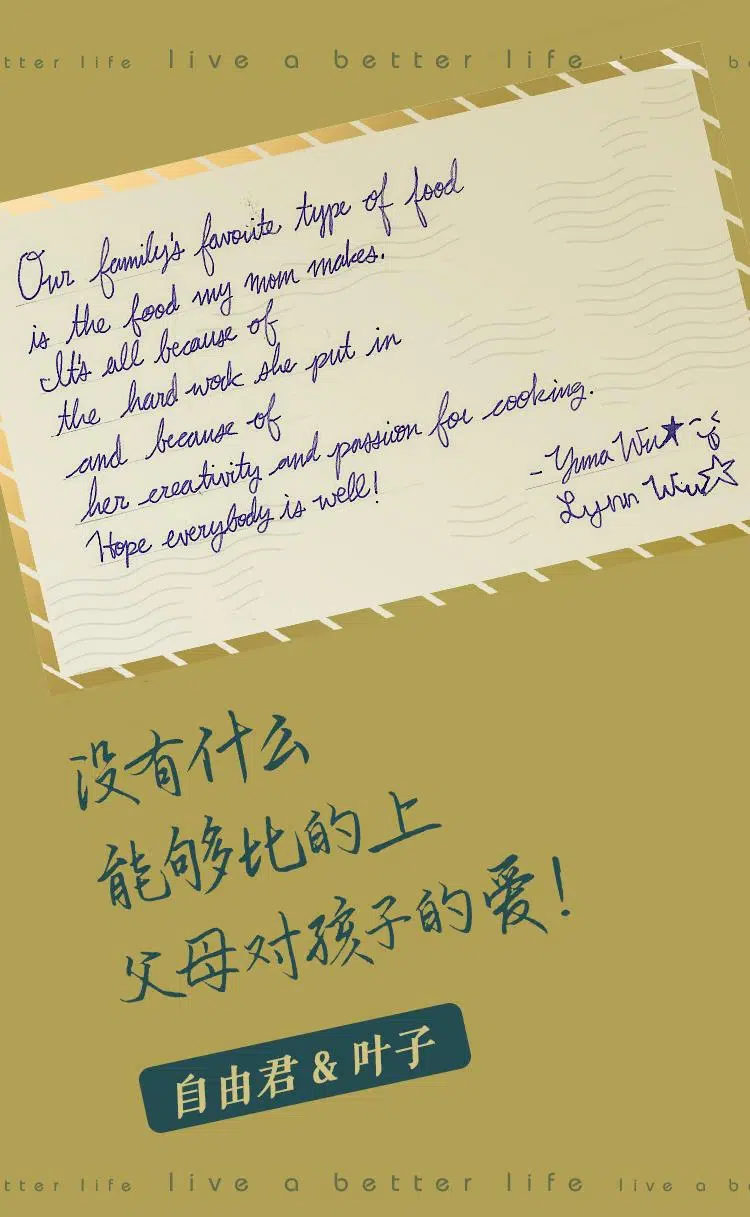 tter life live a better life be
Our family's favorite type of food
is the food my mom makes.
It's all because of
the hard work she put in
and because of
her creativity and passion for cooking.
Hope everybody is well!
- Yuna Wu
Lynn Wu
没有什么
能够比的上
父母对孩子的爱!
自由君 & 叶子
tter life live a better life live a be